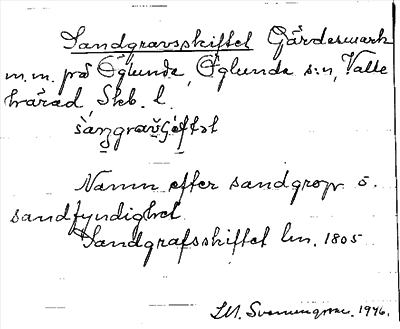 Sandgravsskiftet Gärdesmark
m.m. på Öglunda, Öglunda s:n, Valle
härad, Skb. l.
Namn efter sandgrop o.
sandfyndighet.
Sandgrafsskiftet lm. 1805
1946.